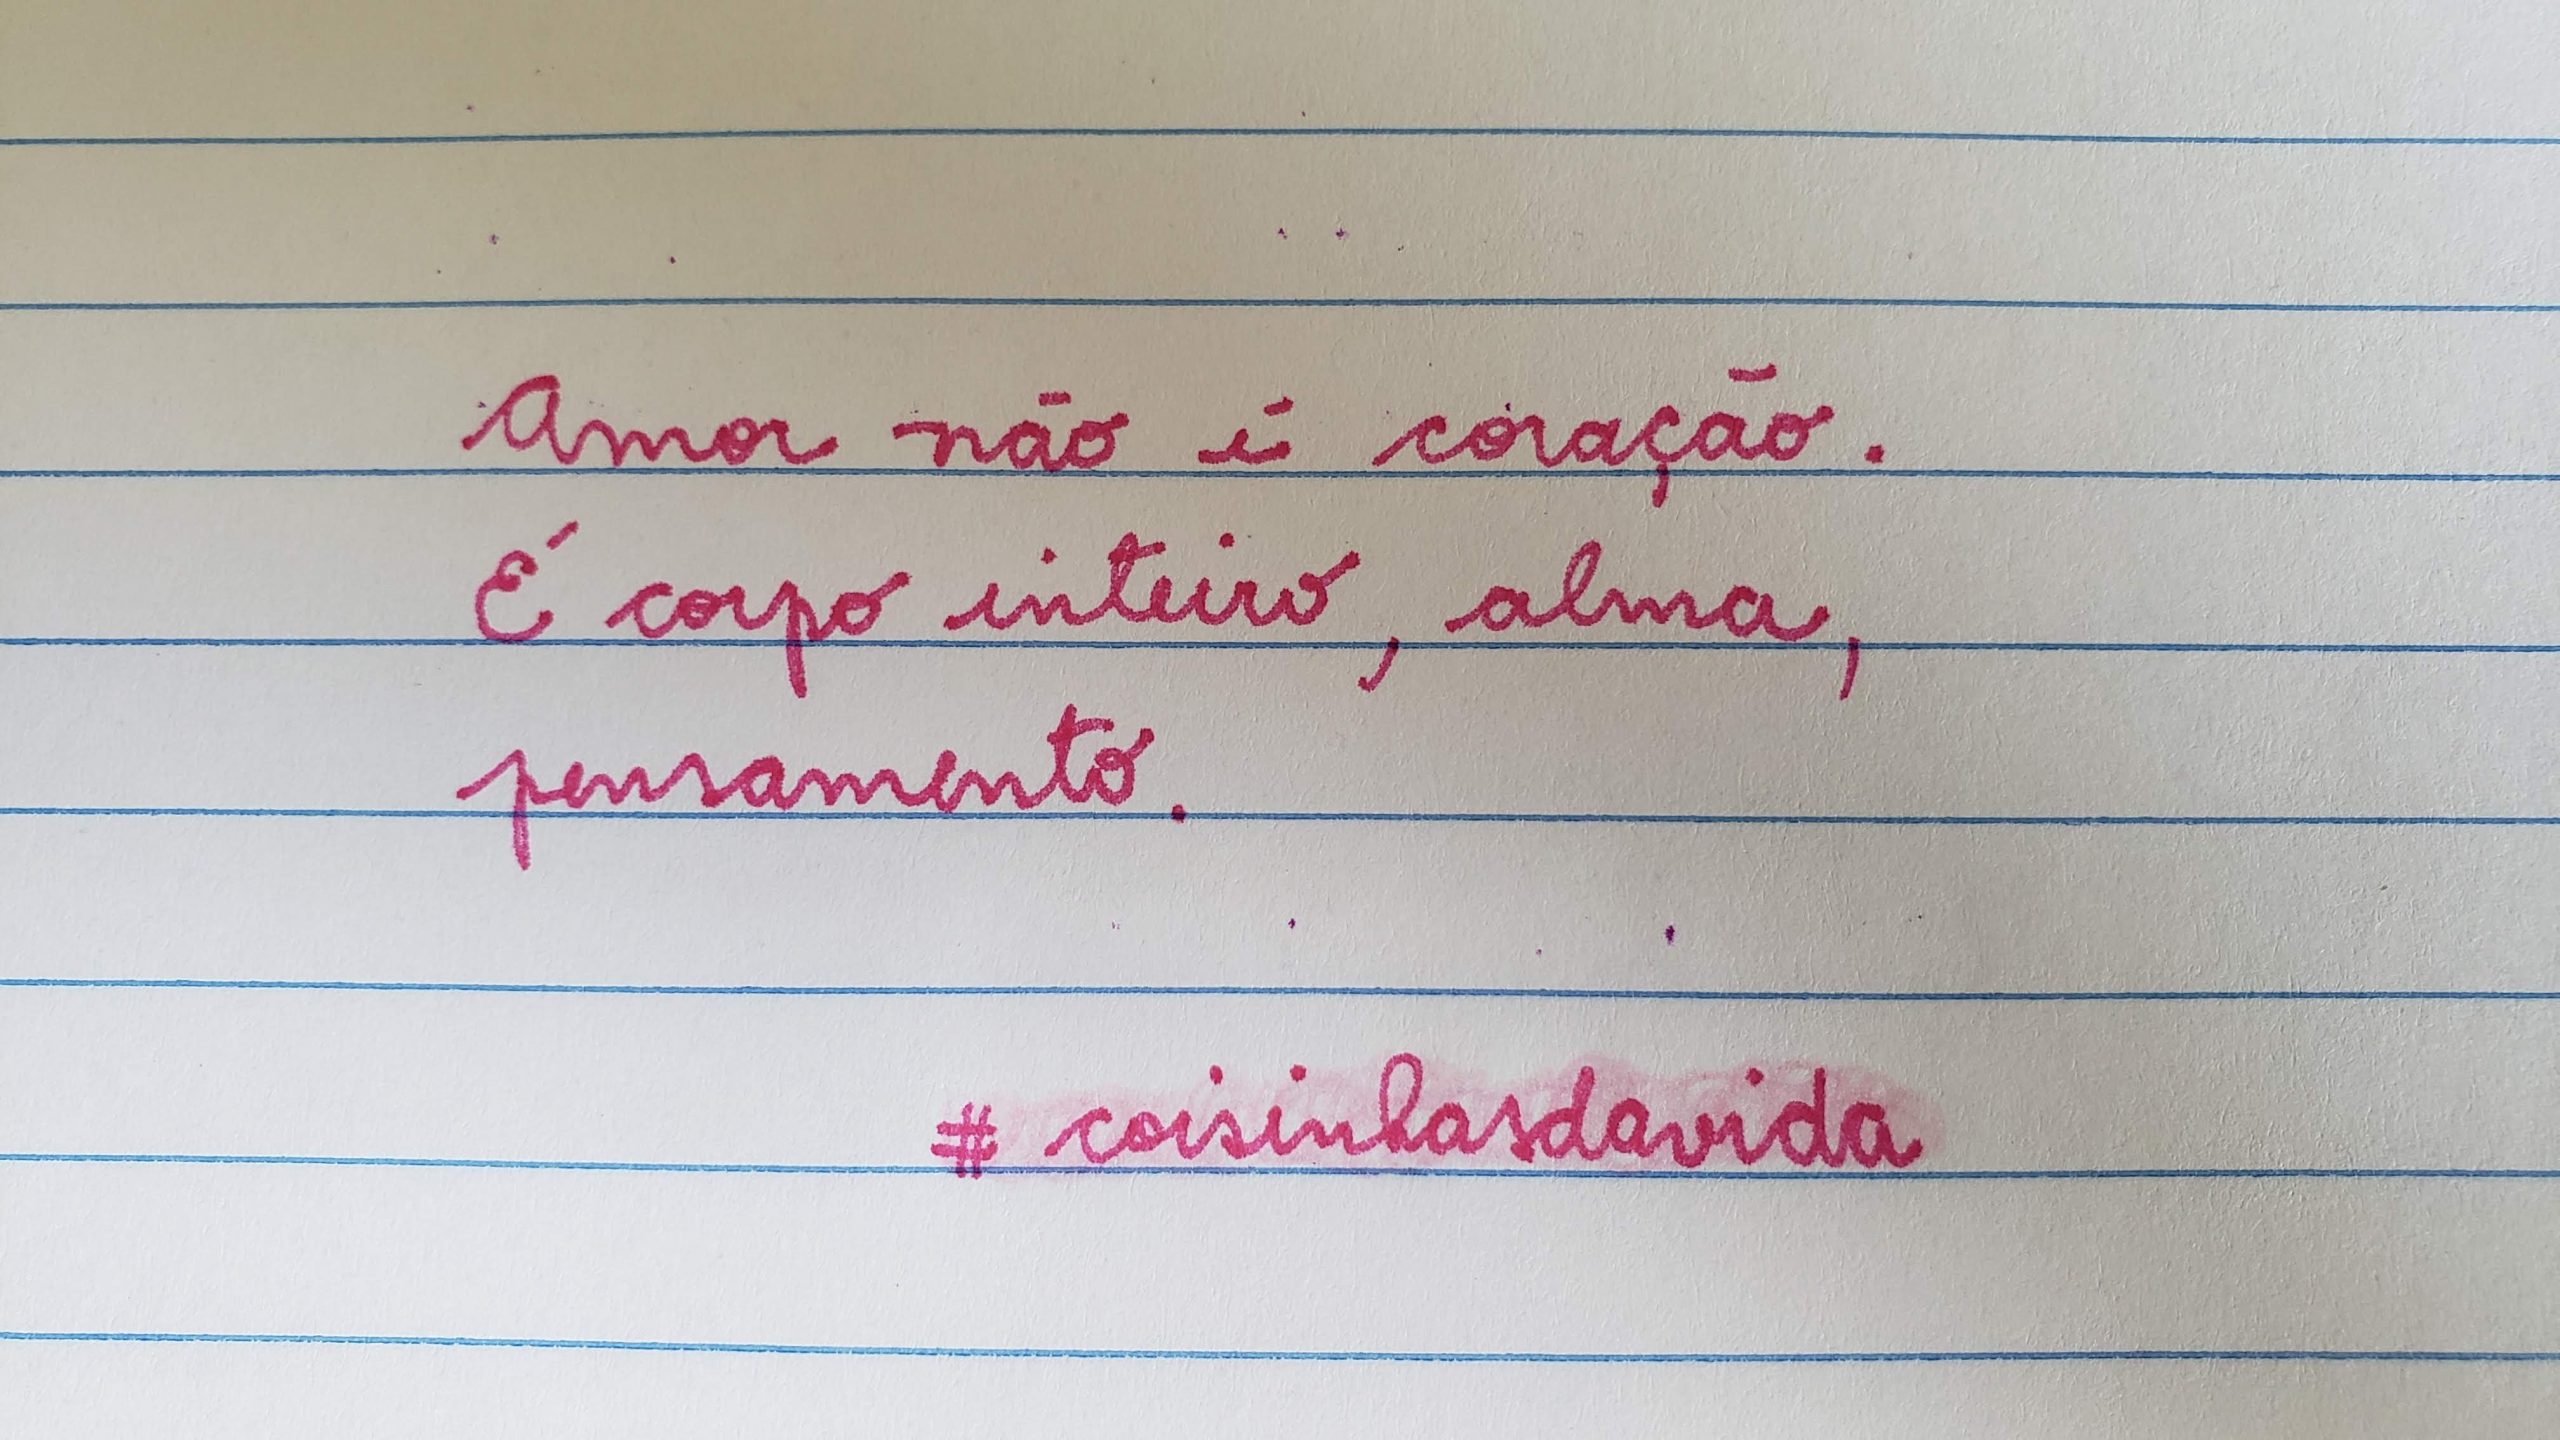 Amor não é coração.
É corpo inteiro, alma,
pensamento.
# coisinhasdavida